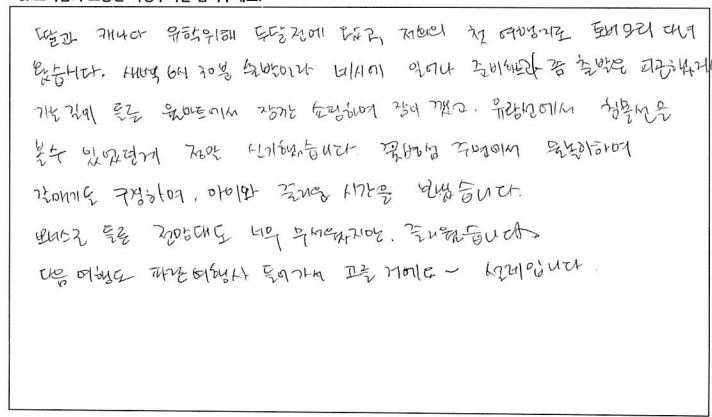 딸과 캐나다 유학위해 두달전에 왔고, 저희의 첫 여행지로 토버모리 다녀
왔습니다. 새벽 6시 30분 출발이라 네시에 일어나 준비해 좀 출발은 피곤했
가는길에 들른 월마트에서 잠깐 쇼핑하며 잠이 깼고, 유람선에서 침몰선을
볼수 있었던게 정말 신기했습니다. 꽃병섬 주변에서 물놀이하며
갈매기도 구경하며, 아이와 즐거운 시간을 보냈습니다.
보너스로 들른 전망대도 너무 무서웠지만, 즐거웠습니다
다음 여행도 파란여행사 들어가서 고를 거예요~ 설레입니다.